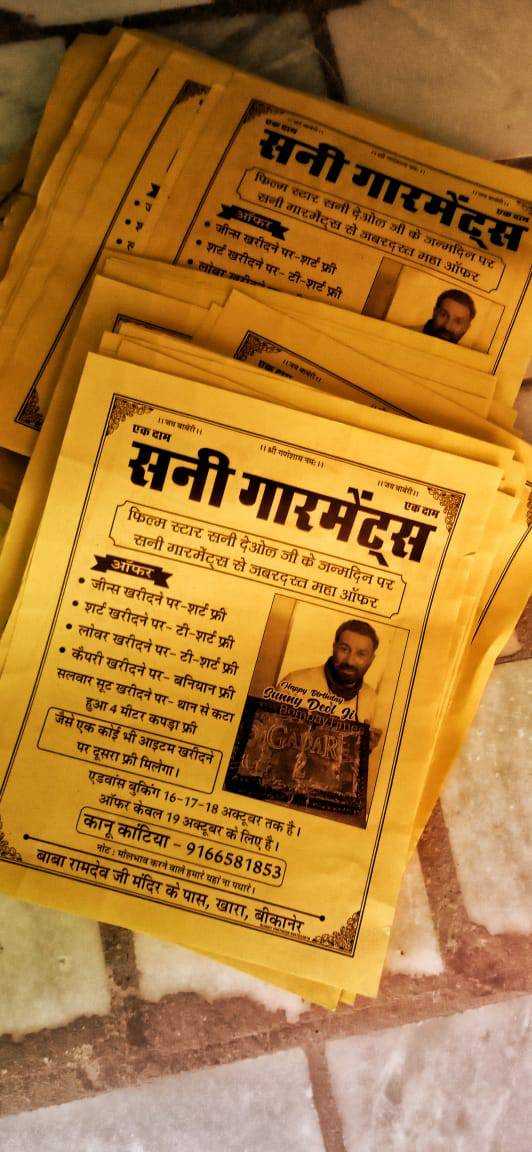 एक दाम
सनी गारमेंट्स
एक दाम
फिल्म स्टार सनी देओल जी के जन्मदिन पर
सनी गारमेंट्स से जबरदस्त महा ऑफर
ऑफर
• जीन्स खरीदने पर-शर्ट फ्री
• शर्ट खरीदने पर- टी-शर्ट फ्री
• लोवर खरीदने
एक दाम
।।जय बाबेरी।।
।।श्री गणेशाय नमः।।
।।जय बाबेरी।।
एक दाम
एक दाम
सनी गारमेंट्स
फिल्म स्टार सनी देओल जी के जन्मदिन पर
सनी गारमेंट्स से जबरदस्त महा ऑफर
ऑफर
• जीन्स खरीदने पर-शर्ट फ्री
• शर्ट खरीदने पर- टी-शर्ट फ्री
• लोवर खरीदने पर- टी-शर्ट फ्री
• कैपरी खरीदने पर- बनियान फ्री
सलवार सूट खरीदने पर- थान से कटा
हुआ 4 मीटर कपड़ा फ्री
जैसे एक कोई भी आइटम खरीदने
पर दूसरा फ्री मिलेगा।
Happy Birthday
Sunny Deol Ji
GADAR
2
एडवांस बुकिंग 16-17-18 अक्टूबर तक है।
ऑफर केवल 19 अक्टूबर के लिए है।
कानू कांटिया - 9166581853
नोट: मोलभाव करने वाले हमारे यहां ना पधारे।
बाबा रामदेव जी मंदिर के पास, खारा, बीकानेर